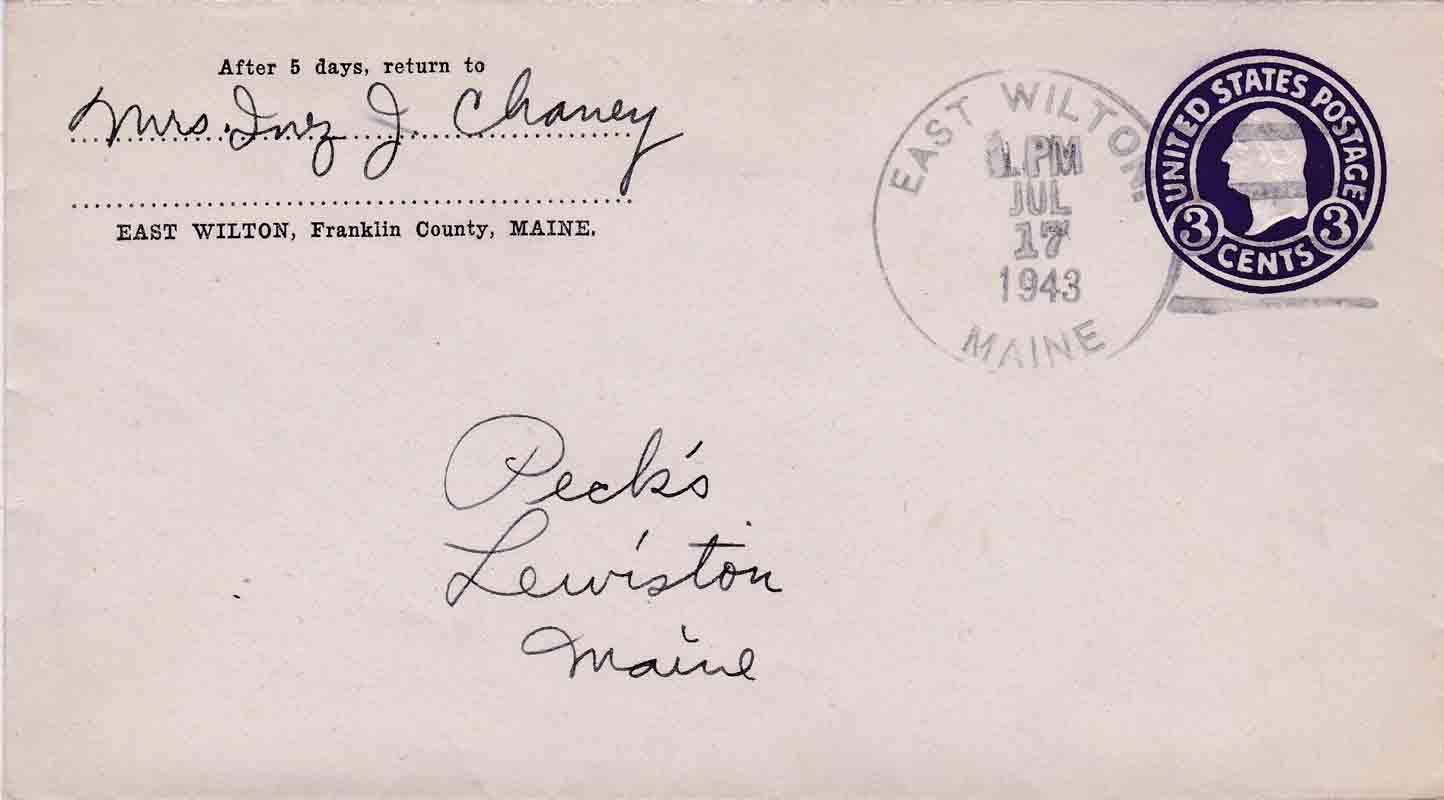 After 5 days, return to
Mrs. Inez J. Chaney
EAST WILTON, Franklin County, MAINE.
EAST WILTON
1 PM
JUL
17
1943
MAINE
UNITED STATES POSTAGE
3 CENTS 3
Peck's
Lewiston
Maine